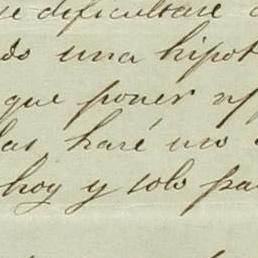 se dificultase
do una hipot
que poner
las haré uso
hoy y solo pa